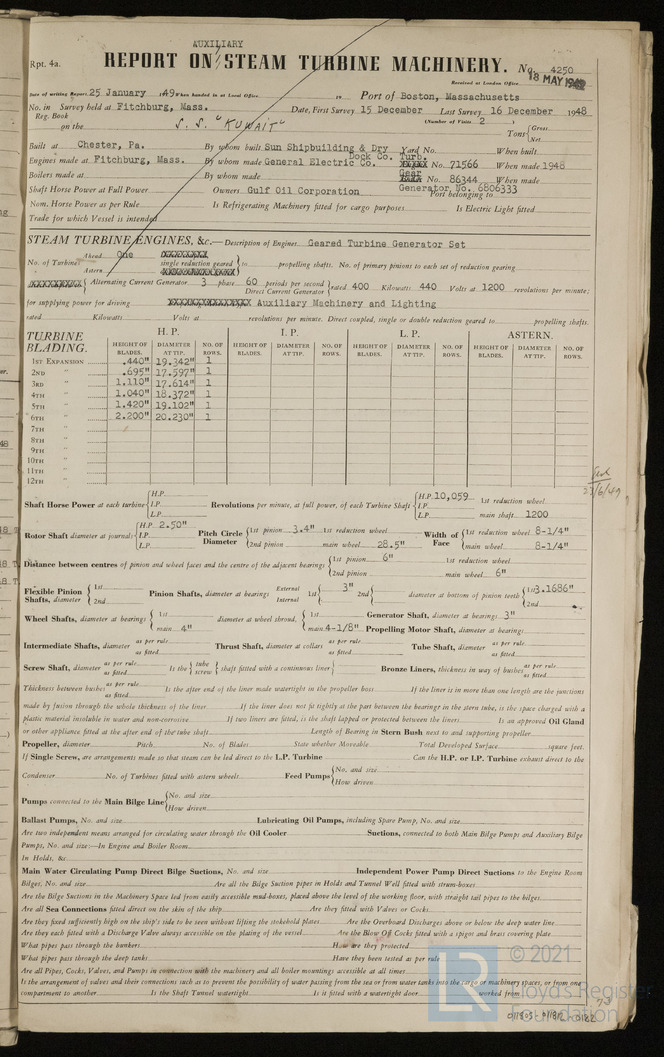 AUXILIARY
Rpt. 4a.
REPORT ON STEAM TURBINE MACHINERY.
No. 4250
Received at London Office 18 MAY 1949
Date of writing Report 25 January 1949 When handed in at Local Office 19 Port of Boston, Massachusetts
No. in Survey held at Fitchburg, Mass. Date, First Survey 15 December Last Survey 16 December 1948
Reg. Book (Number of Visits 2 )
on the S.S. "KUWAIT" Tons { Gross Net
Built at Chester, Pa. By whom built Sun Shipbuilding & Dry Dock Co. Yard No. When built
Engines made at Fitchburg, Mass. By whom made General Electric Co. Turb. No. 71566 When made 1948
Boilers made at By whom made Gear No. 86344 When made
Shaft Horse Power at Full Power Owners Gulf Oil Corporation Generator No. 6806333 Port belonging to
Nom. Horse Power as per Rule Is Refrigerating Machinery fitted for cargo purposes Is Electric Light fitted
Trade for which Vessel is intended
STEAM TURBINE ENGINES, &c.—Description of Engines Geared Turbine Generator Set
No. of Turbines Ahead One Astern single reduction geared } to propelling shafts. No. of primary pinions to each set of reduction gearing
Alternating Current Generator 3 phase 60 periods per second Direct Current Generator } rated 400 Kilowatts 440 Volts at 1200 revolutions per minute;
for supplying power for driving Auxiliary Machinery and Lighting
rated Kilowatts Volts at revolutions per minute. Direct coupled, single or double reduction geared to propelling shafts.
TURBINE BLADING. H. P. I. P. L. P. ASTERN.
HEIGHT OF BLADES. DIAMETER AT TIP. NO. OF ROWS. HEIGHT OF BLADES. DIAMETER AT TIP. NO. OF ROWS. HEIGHT OF BLADES. DIAMETER AT TIP. NO. OF ROWS. HEIGHT OF BLADES. DIAMETER AT TIP. NO. OF ROWS.
1ST EXPANSION .440" 19.342" 1
2ND " .695" 17.597" 1
3RD " 1.110" 17.614" 1
4TH " 1.040" 18.372" 1
5TH " 1.420" 19.102" 1
6TH " 2.200" 20.230" 1
7TH "
8TH "
9TH "
10TH "
11TH "
12TH "
Shaft Horse Power at each turbine { H.P. I.P. L.P. Revolutions per minute, at full power, of each Turbine Shaft { H.P. 10,059 I.P. L.P. 1st reduction wheel main shaft 1200
Rotor Shaft diameter at journals { H.P. 2.50" I.P. L.P. Pitch Circle Diameter { 1st pinion 3.4" 1st reduction wheel 2nd pinion main wheel 28.5" Width of Face { 1st reduction wheel 8-1/4" main wheel 8-1/4"
Distance between centres of pinion and wheel faces and the centre of the adjacent bearings { 1st pinion 6" 2nd pinion 1st reduction wheel main wheel 6"
Flexible Pinion Shafts, diameter { 1st 2nd Pinion Shafts, diameter at bearings External Internal 1st { 3" 2nd { diameter at bottom of pinion teeth { 1st 3.1686" 2nd
Wheel Shafts, diameter at bearings { 1st main 4" diameter at wheel shroud, { 1st main 4-1/8" Generator Shaft, diameter at bearings 3"
Propelling Motor Shaft, diameter at bearings
Intermediate Shafts, diameter as per rule as fitted Thrust Shaft, diameter at collars as per rule as fitted Tube Shaft, diameter as per rule as fitted
Screw Shaft, diameter as per rule as fitted Is the { tube screw } shaft fitted with a continuous liner { Bronze Liners, thickness in way of bushes as per rule as fitted
Thickness between bushes as per rule as fitted Is the after end of the liner made watertight in the propeller boss If the liner is in more than one length are the junctions
made by fusion through the whole thickness of the liner If the liner does not fit tightly at the part between the bearings in the stern tube, is the space charged with a
plastic material insoluble in water and non-corrosive If two liners are fitted, is the shaft lapped or protected between the liners Is an approved Oil Gland
or other appliance fitted at the after end of the tube shaft Length of Bearing in Stern Bush next to and supporting propeller
Propeller, diameter Pitch No. of Blades State whether Moveable Total Developed Surface square feet.
If Single Screw, are arrangements made so that steam can be led direct to the L.P. Turbine Can the H.P. or I.P. Turbine exhaust direct to the
Condenser No. of Turbines fitted with astern wheels Feed Pumps { No. and size How driven
Pumps connected to the Main Bilge Line { No. and size How driven
Ballast Pumps, No. and size Lubricating Oil Pumps, including Spare Pump, No. and size
Are two independent means arranged for circulating water through the Oil Cooler Suctions, connected to both Main Bilge Pumps and Auxiliary Bilge
Pumps, No. and size:—In Engine and Boiler Room
In Holds, &c.
Main Water Circulating Pump Direct Bilge Suctions, No. and size Independent Power Pump Direct Suctions to the Engine Room
Bilges, No. and size Are all the Bilge Suction pipes in Holds and Tunnel Well fitted with strum-boxes
Are the Bilge Suctions in the Machinery Space led from easily accessible mud-boxes, placed above the level of the working floor, with straight tail pipes to the bilges
Are all Sea Connections fitted direct on the skin of the ship Are they fitted with Valves or Cocks
Are they fixed sufficiently high on the ship's side to be seen without lifting the stokehold plates Are the Overboard Discharges above or below the deep water line
Are they each fitted with a Discharge Valve always accessible on the plating of the vessel Are the Blow Off Cocks fitted with a spigot and brass covering plate
What pipes pass through the bunkers How are they protected
What pipes pass through the deep tanks Have they been tested as per rule
Are all Pipes, Cocks, Valves, and Pumps in connection with the machinery and all boiler mountings accessible at all times
Is the arrangement of valves and their connections such as to prevent the possibility of water passing from the sea or from water tanks into the cargo or machinery spaces, or from one
compartment to another Is the Shaft Tunnel watertight Is it fitted with a watertight door worked from
© 2021
Lloyd's Register
Foundation